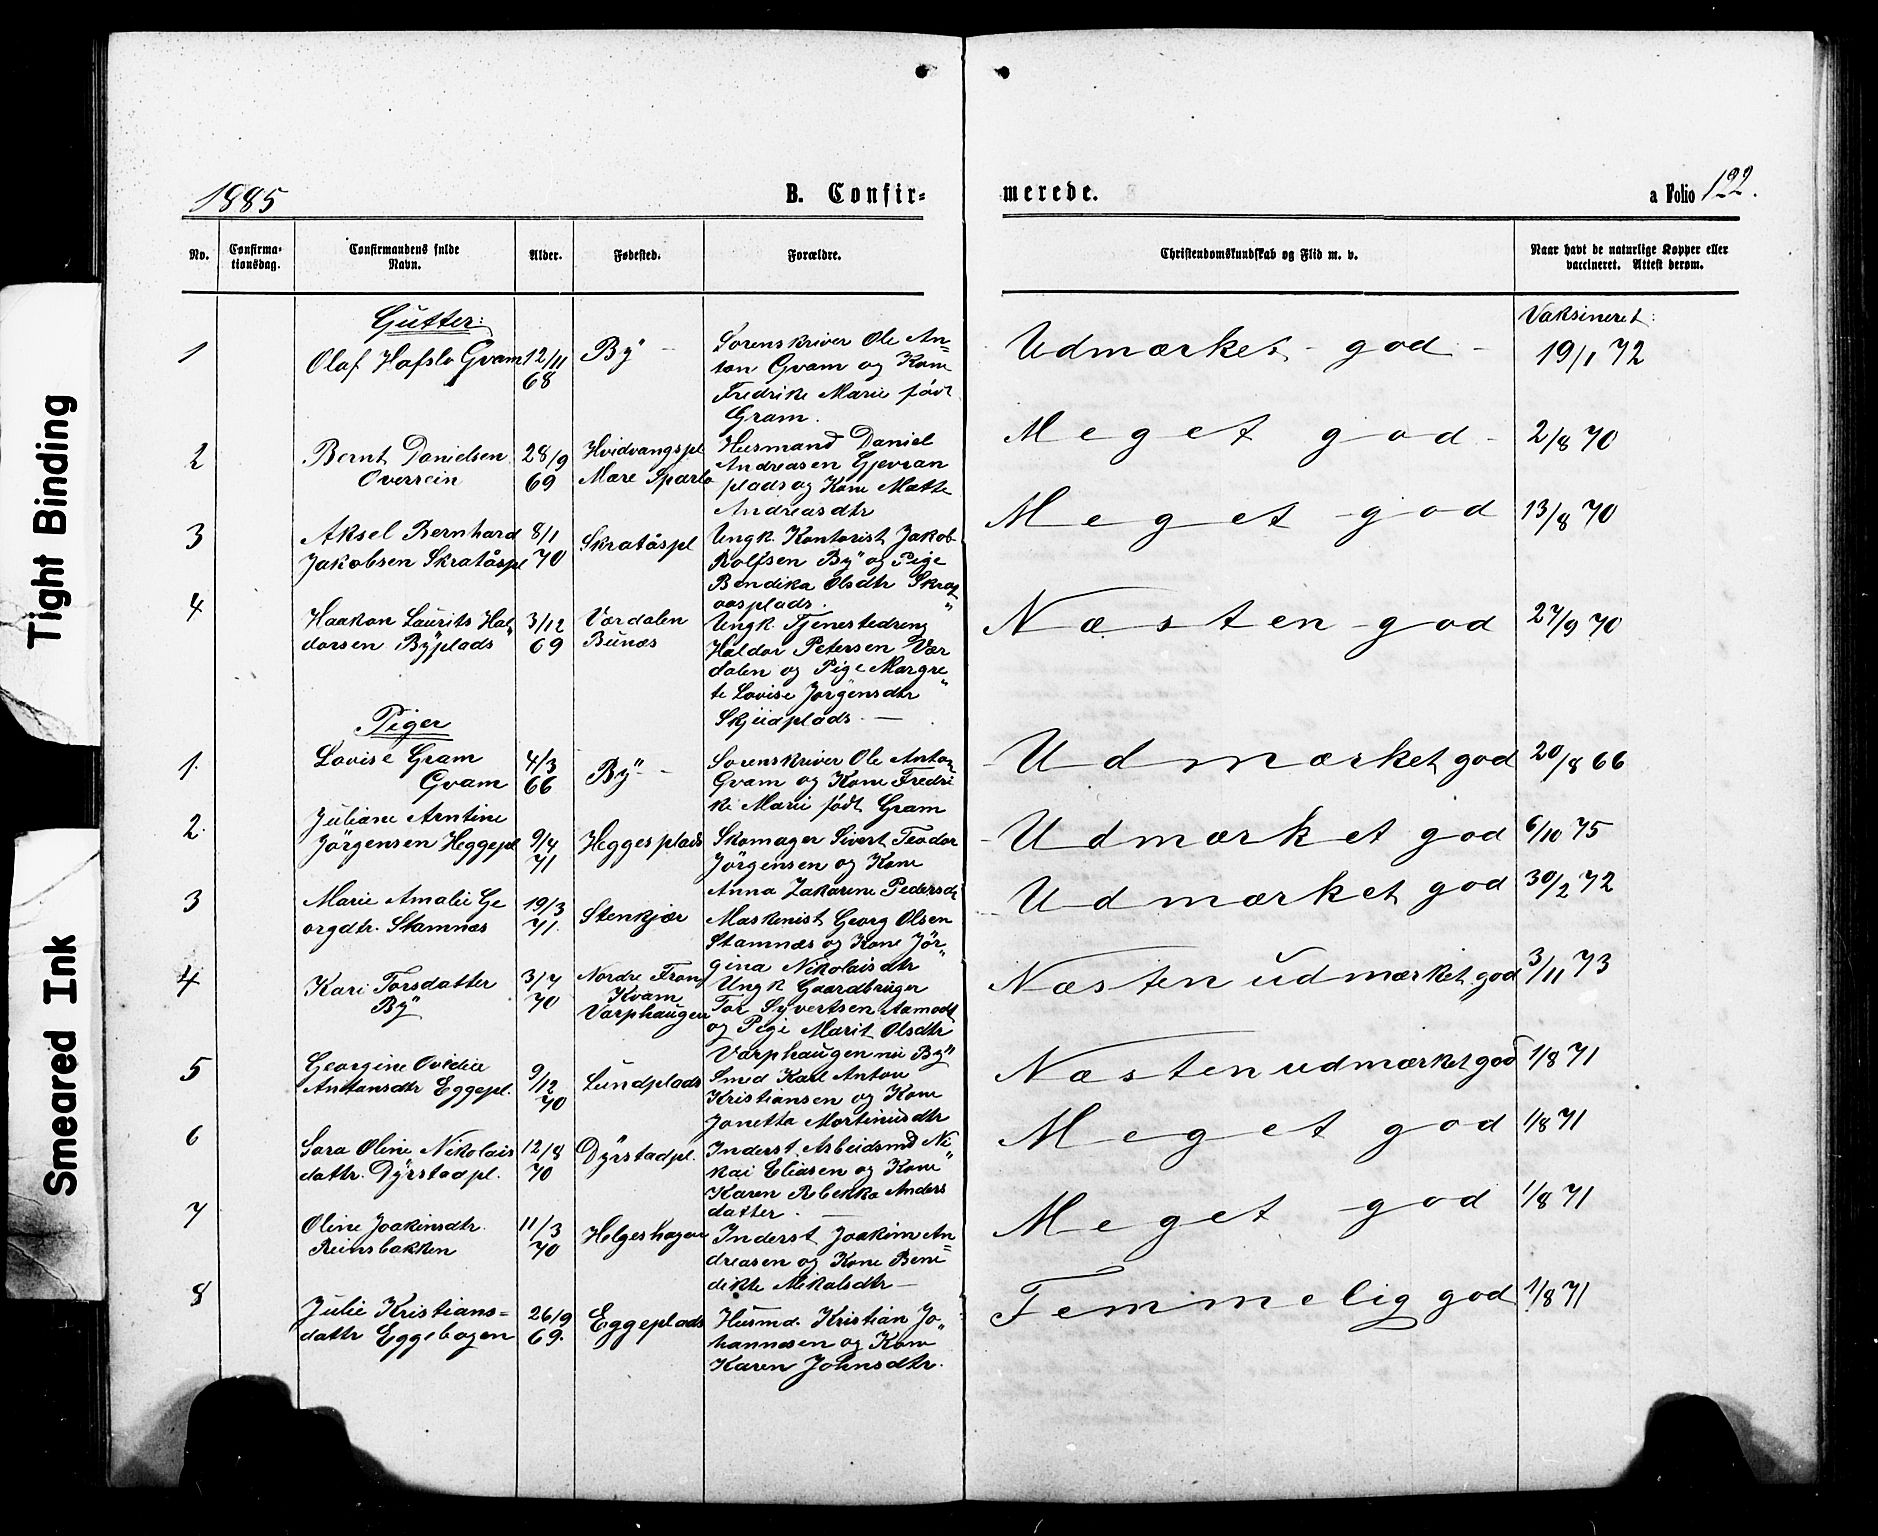 Tight Binding
Smeared Ink
1885
B. Confir=
merede.
a Folio 122.
No.
Confirma-
tionsdag.
Confirmandens fulde
Navn.
Alder.
Fødested.
Forældre.
Christendomskundskab og Flid m. v.
Naar havt de naturlige Kopper eller
vaccineret. Attest derom.
Gutter:
Vaksineret:
1
Olaf Hafslo Gvam
12/11
68
By
Sorenskriver Ole An=
ton Gvam og Kone
Fredrike Marie født
Gram.
Udmærket god
19/1 72
2
Bernt Danielsen
Overrein
28/9
69
Hvidvangspl
Mære Sparbo
Husmand Daniel
Andreasen Gjevran
plads og Kone Matte
Andreasdtr
Meget god
2/8 70
3
Aksel Bernhard
Jakobsen Skratåspl
8/1
70
Skratåspl
Ungk. Kontorist Jakob
Rolfsen By og Pige
Bendika Olsdtr Skrat
aasplads.
Meget god
13/8 70
4
Haakon Laurits Hal
dorsen Byplads
3/12
69
Værdalen
Bunæs
Ungk. Tjenestedreng
Haldor Petersen Vær
dalen og Pige Margre
te Lovise Jørgensdtr
Skjeidplads.
Næsten god
27/9 70
Piger
1.
Lovise Gram
Gvam
4/3
66
By
Sorenskriver Ole Anton
Gvam og Kone Fredri
ke Marie født Gram
Udmærket god
20/8 66
2.
Juliane Arntine
Jörgensen Heggepl
9/4
71
Heggesplads
Skomager Sivert Teodor
Jörgensen og Kone
Anna Zakarine Pedersdt
Udmærket god
6/10 75
3
Marie Amalie Ge
orgdtr. Stamnæs
19/3
71.
Stenkjær
Maskenist Georg Olsen
Stamnæs og Kone Jör
gina Nikolaisdtr
Udmærket god
30/2 72
4
Kari Torsdatter
By
3/7
70
Nordre Fron
Kvam
Varphaugen
Ungk Gaardbruger
Tor Syvertsen Aamodt
og Pige Marit Olsdtr
Varphaugen nu By
Næsten udmærket god
3/11 73
5
Georgine Ovidia
Antonsdtr Eggepl.
9/12
70
Lundplads
Smed Karl Anton
Kristiansen og Kone
Jonetta Mortinusdtr
Næsten udmærket god
1/8 71
6
Sara Oline Nikolais
dattr. Dyrstadpl.
12/8
70
Dyrstadpl.
Inderst Arbeidsmd Ni
kai Eliasen og Kone
Karen Rbekka Anders
datter.
Meget god
1/8 71
7
Oline Joakimsdtr.
Reinsbakken
11/3
70
Helgeshagen
Inderst Joakim An
dreasen og Kone Bene
dikte Mikalsdtr
Meget god
1/8 71
8
Julie Kristians=
dattr Eggebogen
26/9
69.
Eggeplads
Husmd. Kristian Jo
hannesen og Kone
Karen Johnsdtr.
Temmelig god
1/8 71